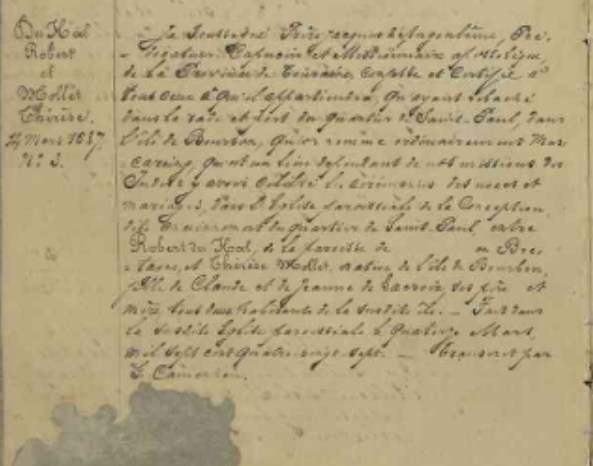 Du Hal
Robert
et
Mollet
Thérèse.
4 Mars 1687.
N° 3.
Je Soussigné Père Jacques
Capucin et Missionnaire apostolique,
de la Province de Touraine, Compte et Certifie à
tous ceux à Qu'il appartiendra, Qu'ayant relaché
dans la rade et Port du quartier de Saint-Paul, dans
l'île de Bourbon, qu'on nomme ordinairement Mas-
careing, qu'est un lieu dépendant de nos missions des
Indes y avoir célébré les cérémonies des noces et
mariages, dans l'Eglise paroissiale de la Conception,
du quartier de Saint-Paul entre
Robert du Hal, de la paroisse de en Bre-
tagne, et Thérèse Mollet, native de l'île de Bourbon,
fille de Claude et de Jeanne de Lacroix ses père et
mère tous deux habitants de la susdite île. — Fait dans
la susdite Eglise paroissiale le quatre Mars,
mil sept cent quatre vingt sept. — Transcrit par